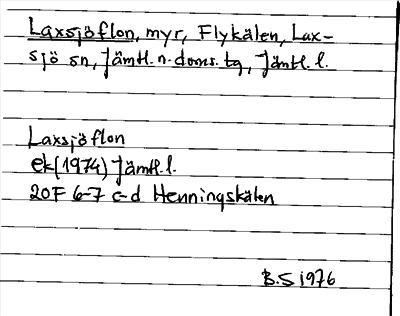 Laxsjöflon, myr, Flykälen, Lax-
sjö sn, Jämtl. n. doms. tg, Jämtl. l.
Laxsjöflon
ek (1974) Jämtl. l.
20F 6-7 c-d Henningskälen
B.S 1976